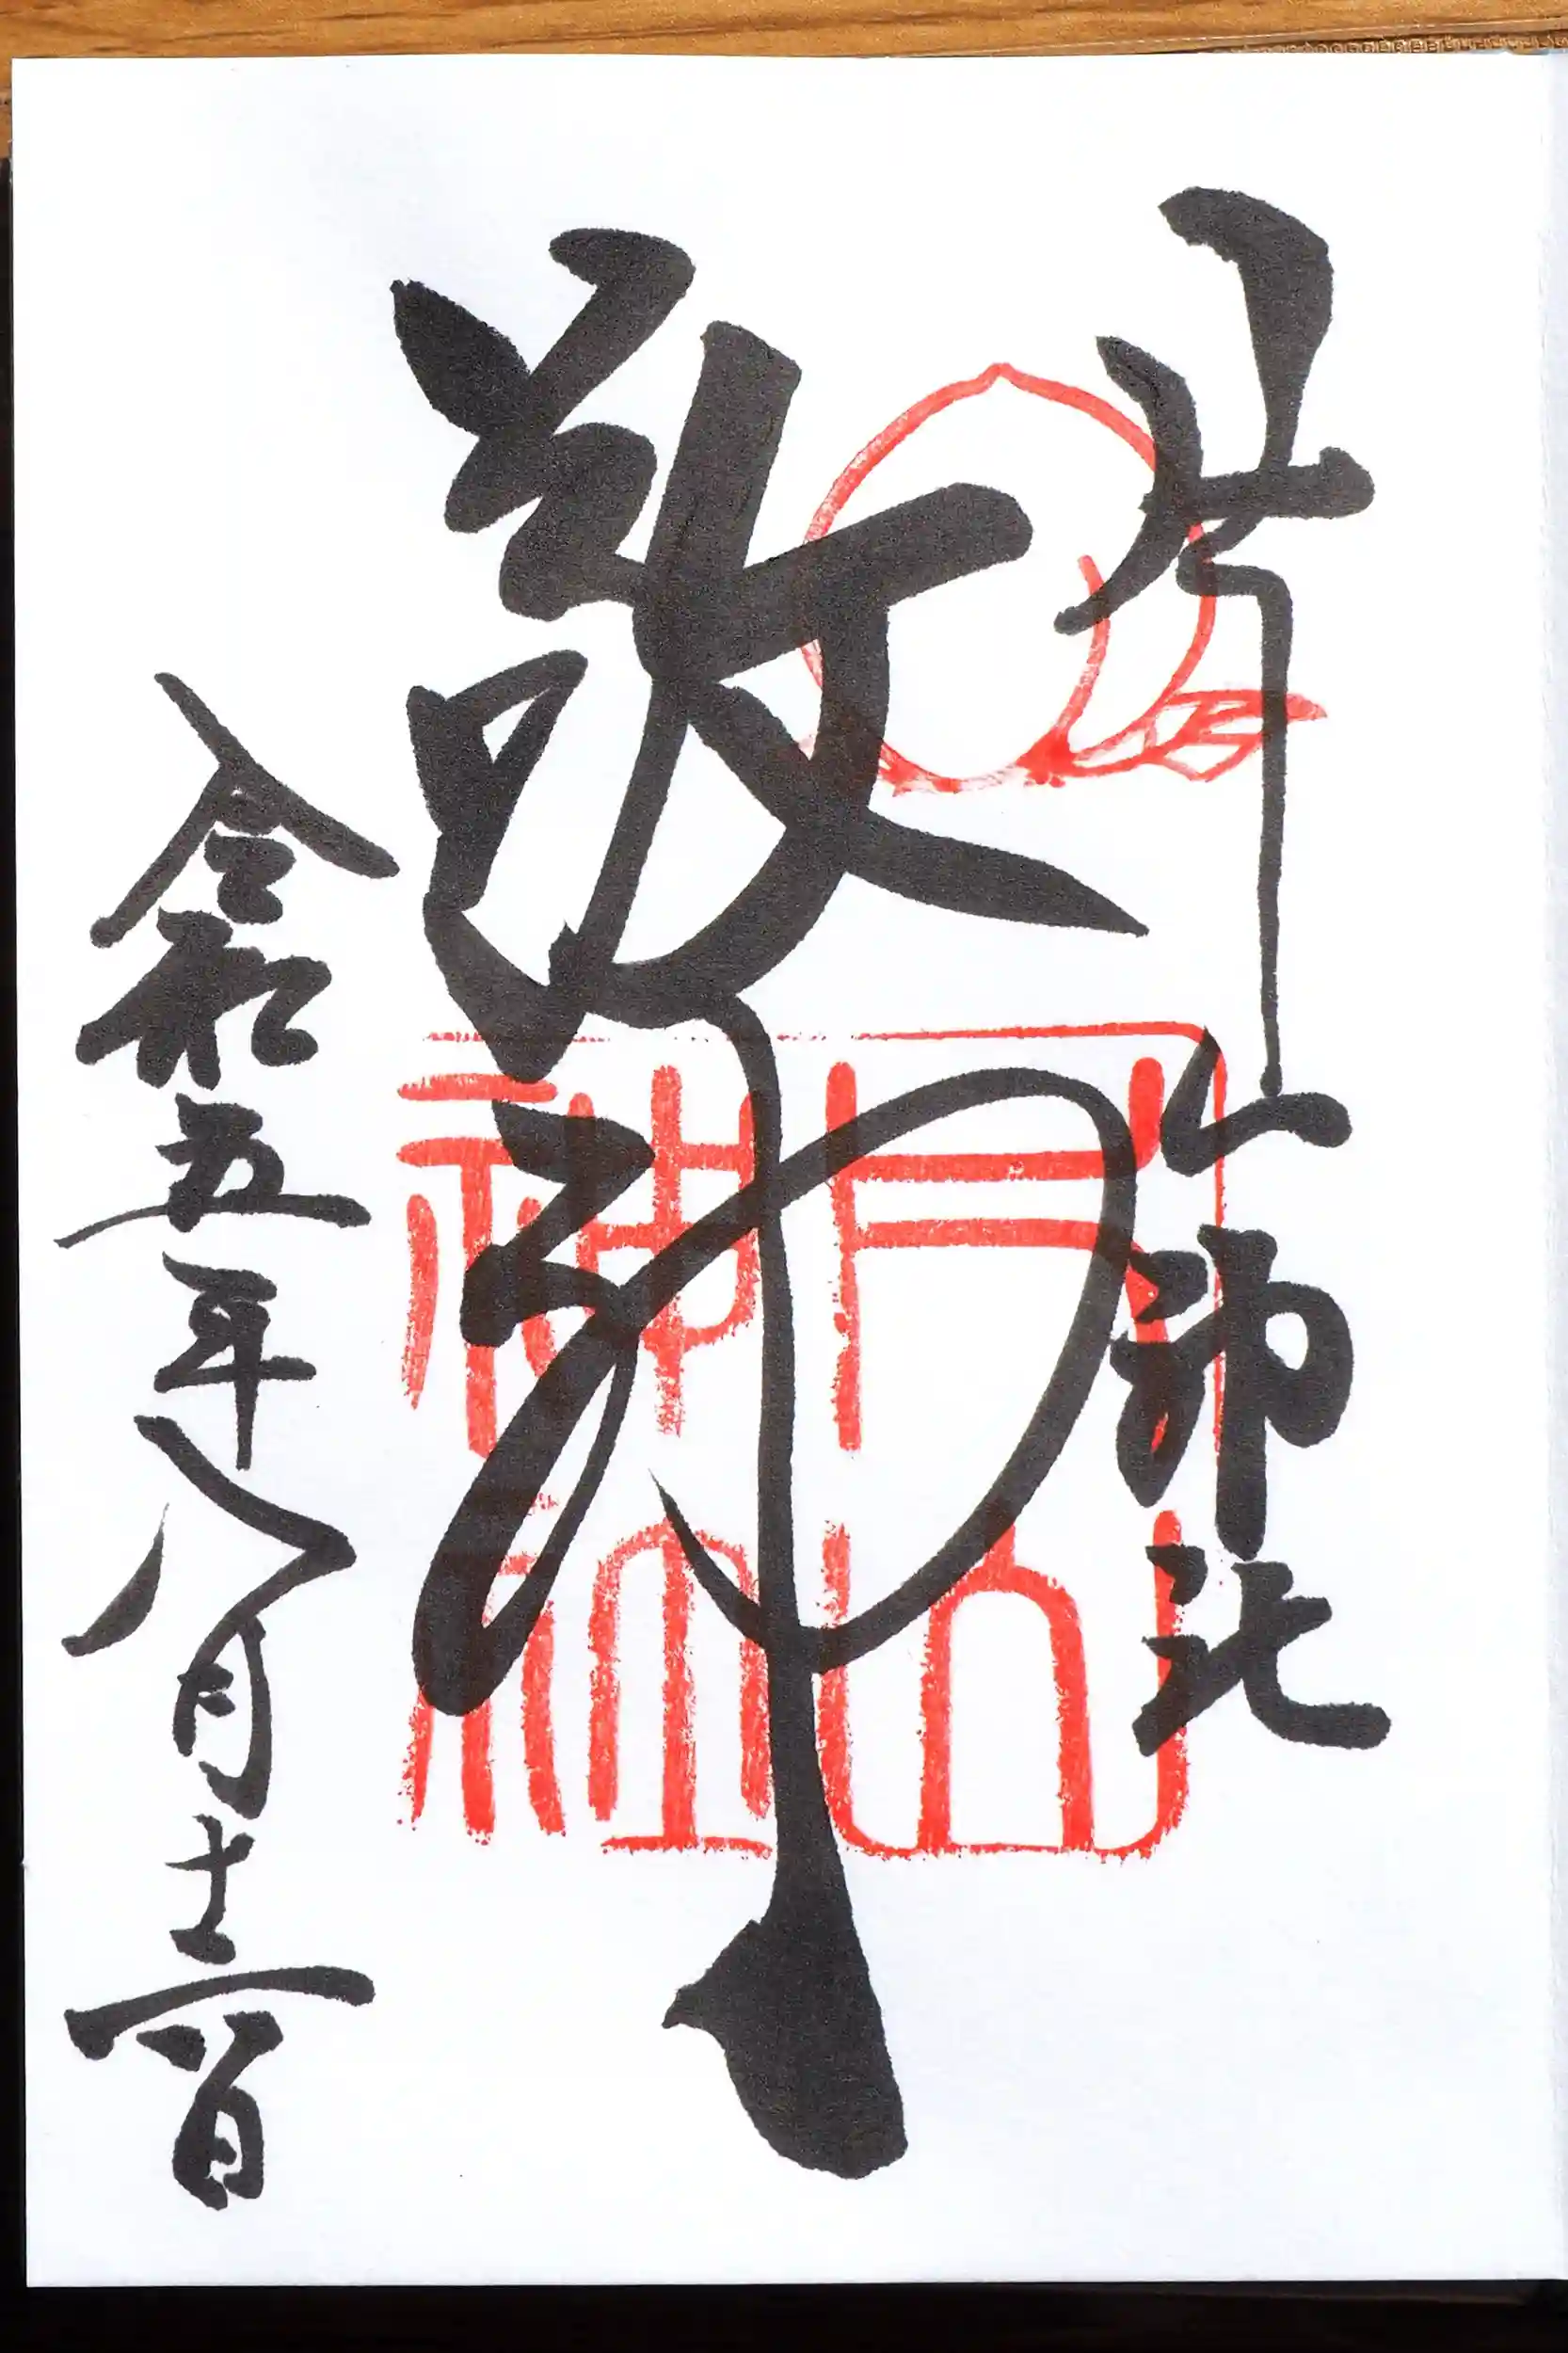 片山神社
敬神
令和五年八月十二日
片山
神社